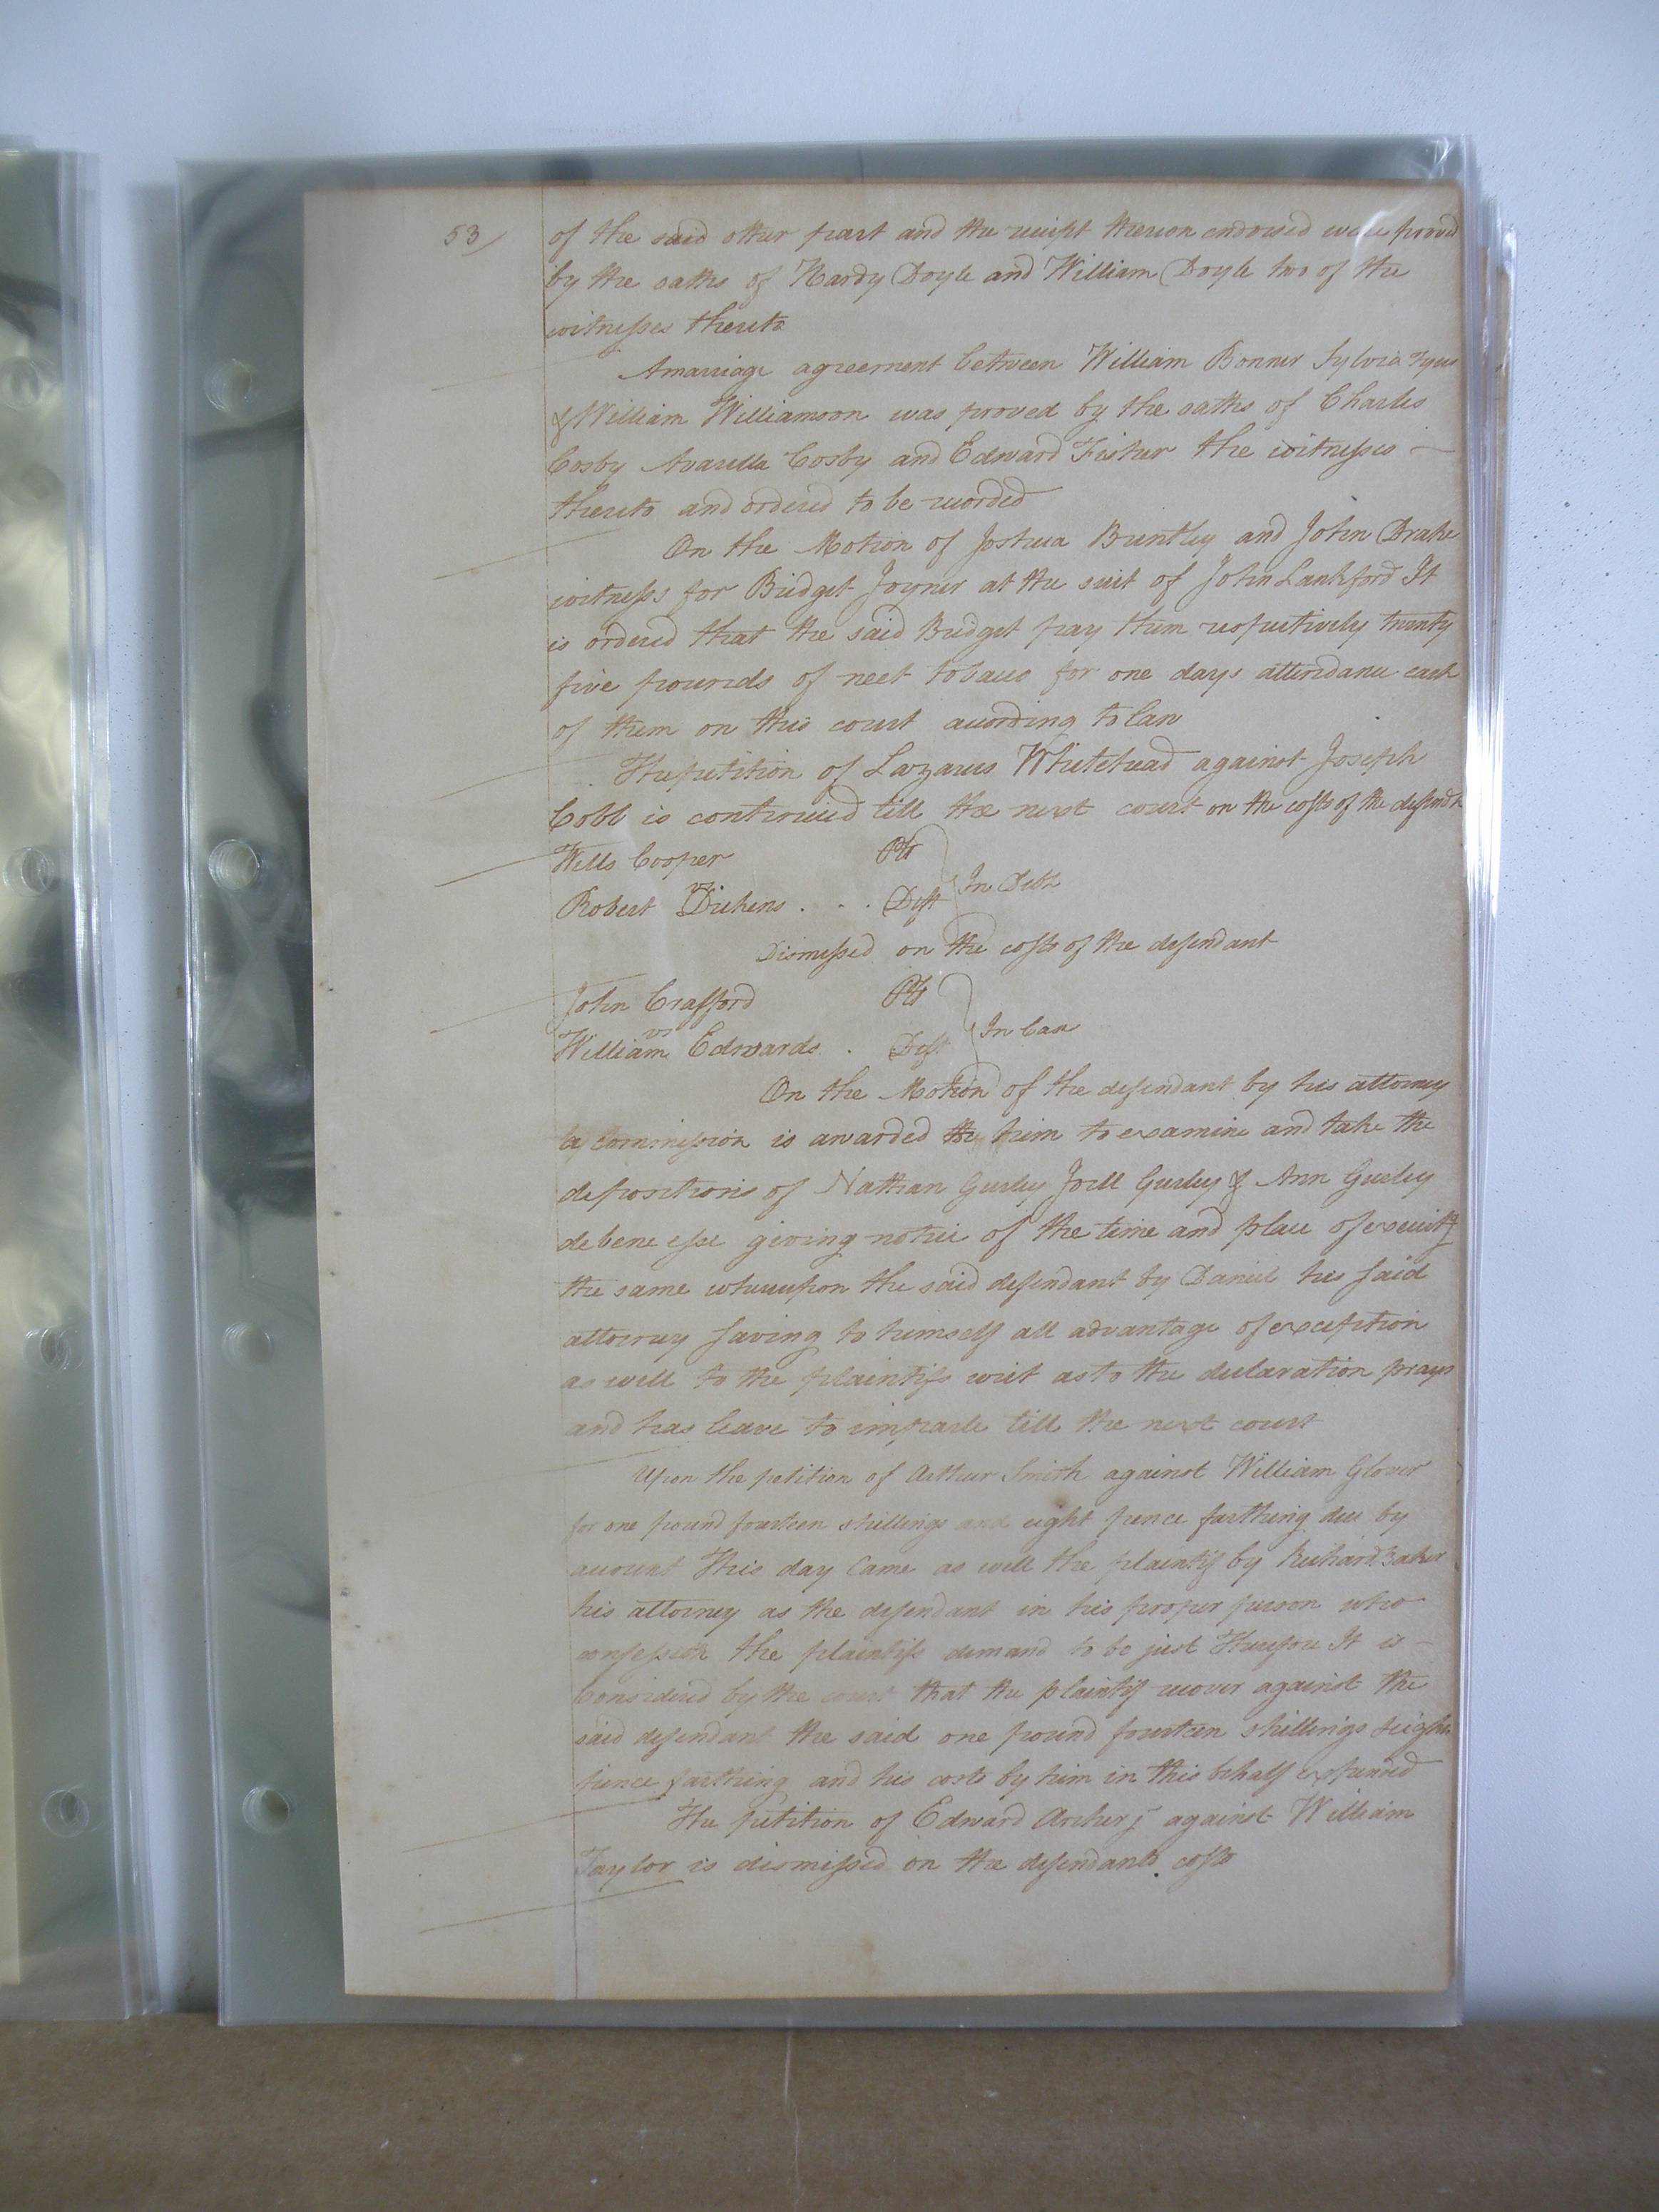 53/
of the said other part and the receipt thereon endorsed were proved
by the oaths of Hardy Doyle and William Doyle two of the
witnesses thereto
A marriage agreement between William Bonner Sylvia Tyus
& William Williamson was proved by the oaths of Charles
Cosby Avarilla Cosby and Edward Fisher the witnesses –
thereto and ordered to be recorded
On the Motion of Joshua Bruntley and John Drake
witness for Bridget Joyner at the suit of John Lankford It
is ordered that the said Bridget pay them respectively twenty
five pounds of neet tobacco for one days attendance each
of them on this court according to law
The petition of Lazarus Whitehead against Joseph
Cobb is continued till the next court on the costs of the defendt
Wills Cooper Plt
vs In Debt
Robert Dickens . . . Deft
Dismissed on the costs of the defendant
John Crafford Plt
vs In Case
William Edwards . Deft
On the Motion of the defendant by his attorney
a Commission is awarded the him to examine and take the
depositions of Nathan Gurley Joell Gurley & Ann Gurley
debene esse giving notice of the time and place of executg
the same whereupon the said defendant by Daniel his said
attorney saving to himself all advantage of exception
as well to the plaintifs writ as to the declaration prays
and has leave to imparle till the next court
Upon the petition of Arthur Smith against William Glover
for one pound fourteen shillings and eight pence farthing due by
account This day Came as well the plaintif by Richard Baker
his attorney as the defendant in his proper person who
confesseth the plaintifs demand to be just Therefore It is –
Considered by the court that the plaintif recover against the
said defendant the said one pound fourteen shillings & eight
pence farthing and his costs by him in this behalf expended
The petition of Edward Archer j against William
Taylor is dismissed on the defendants costs